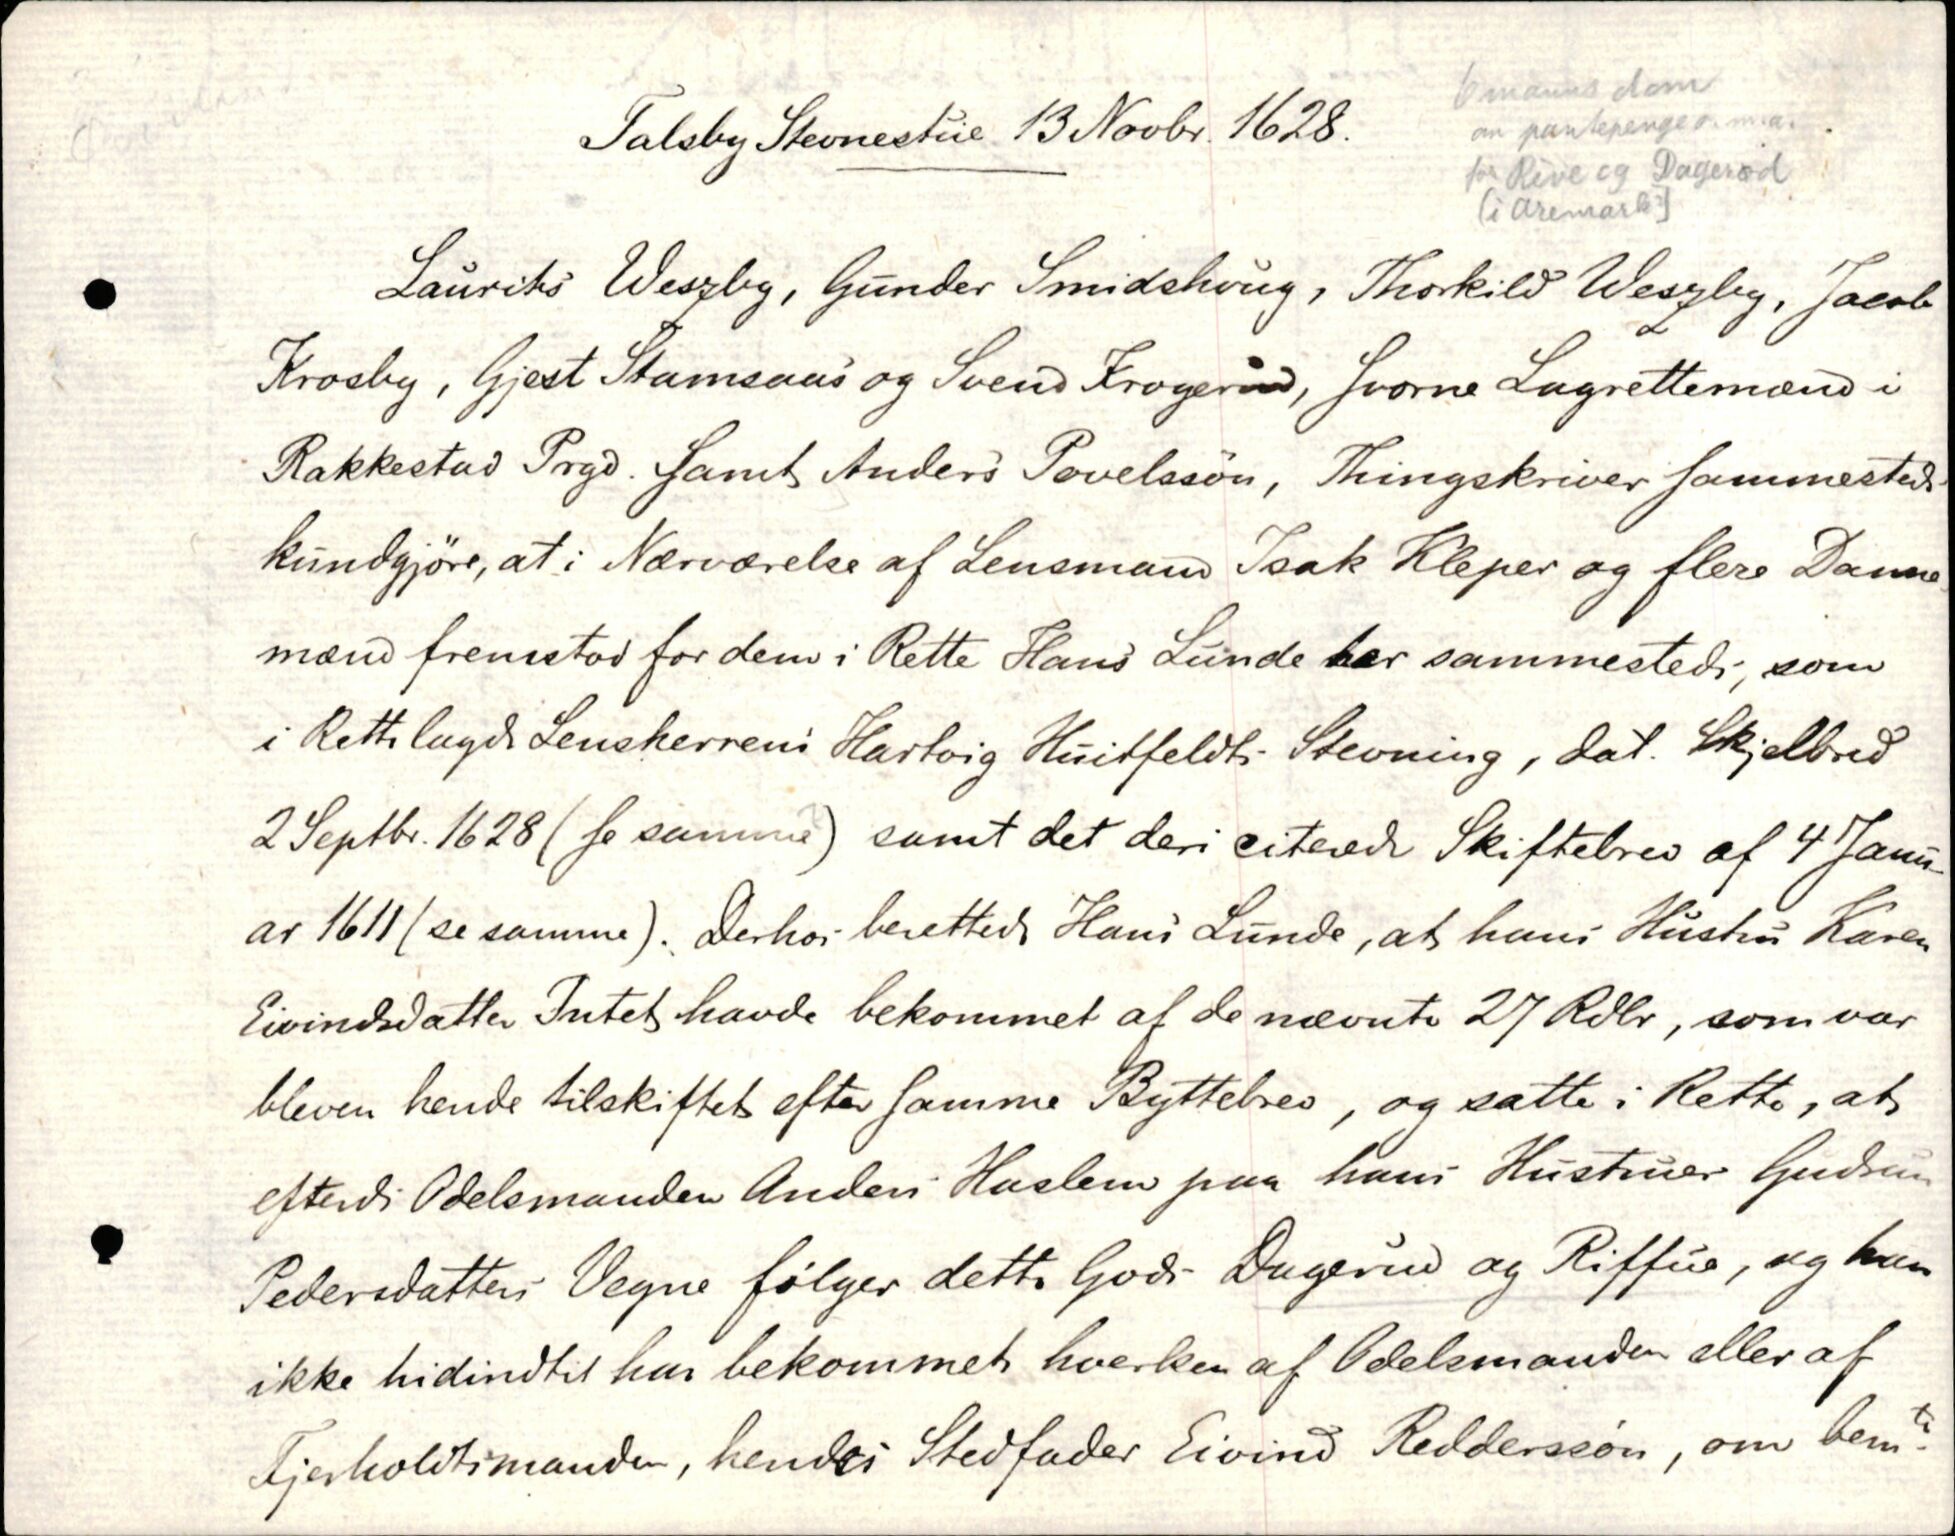 Talsby Stevnestue 13 Novbr. 1628.
6 manns dom
om pantepenge o.m.a.
for Rive og Dagerød
(i Aremark?]
Laurits Weszby, Gunder Smidshoug, Thorkild Weszby, Jacob
Krosby, Gjest Stamsaas og Svend Krogerud, svorne Lagrettemænd i
Rakkestad Prgd. samt Anders Povelssön, Thingskriver sammesteds
kundgjöre, at i Nærværelse af Lensmand Isak Kleper og flere Danne
mænd fremstod for dem i Rette Hans Lunde her sammesteds, som
i Rette lagde Lensherrens Hartvig Huitfeldts Stevning, dat. Skjelbred
2 Septbr. 1628 (se samme) samt det deri citerede Skiftebrev af 4 Janu-
ar 1611 (se samme). Derhos berettede Hans Lunde, at hans Hustru Karen
Eivindsdatter Intet havde bekommet af de nævnte 27 Rdlr, som var
bleven hende tilskiftet efter samme Byttebrev, og satte i Rette, at
efterdi Odelsmanden Anders Haslem paa hans Hustruer Gudrun
Pedersdatters Vegne følger dette Gods Dagerud og Riffue, og hun
ikke hidindtil har bekommet hverken af Odelsmanden eller af
Fjerholdtsmanden, hendes Stedfader Eivind Reddersson, om bemte.